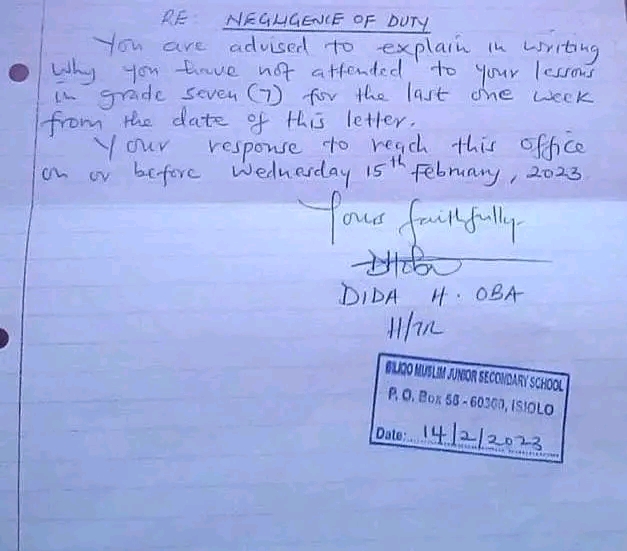 RE: NEGLIGENCE OF DUTY
You are advised to explain in writing
why you have not attended to your lessons
in grade seven (7) for the last one week
from the date of this letter.
Your response to reach this office
on or before Wednesday 15th February, 2023
Yours faithfully
DIDA H. OBA
H/TR
BILIQO MUSLIM JUNIOR SECONDARY SCHOOL
P. O. Box 58 - 60300, ISIOLO
Date: 14/2/2023